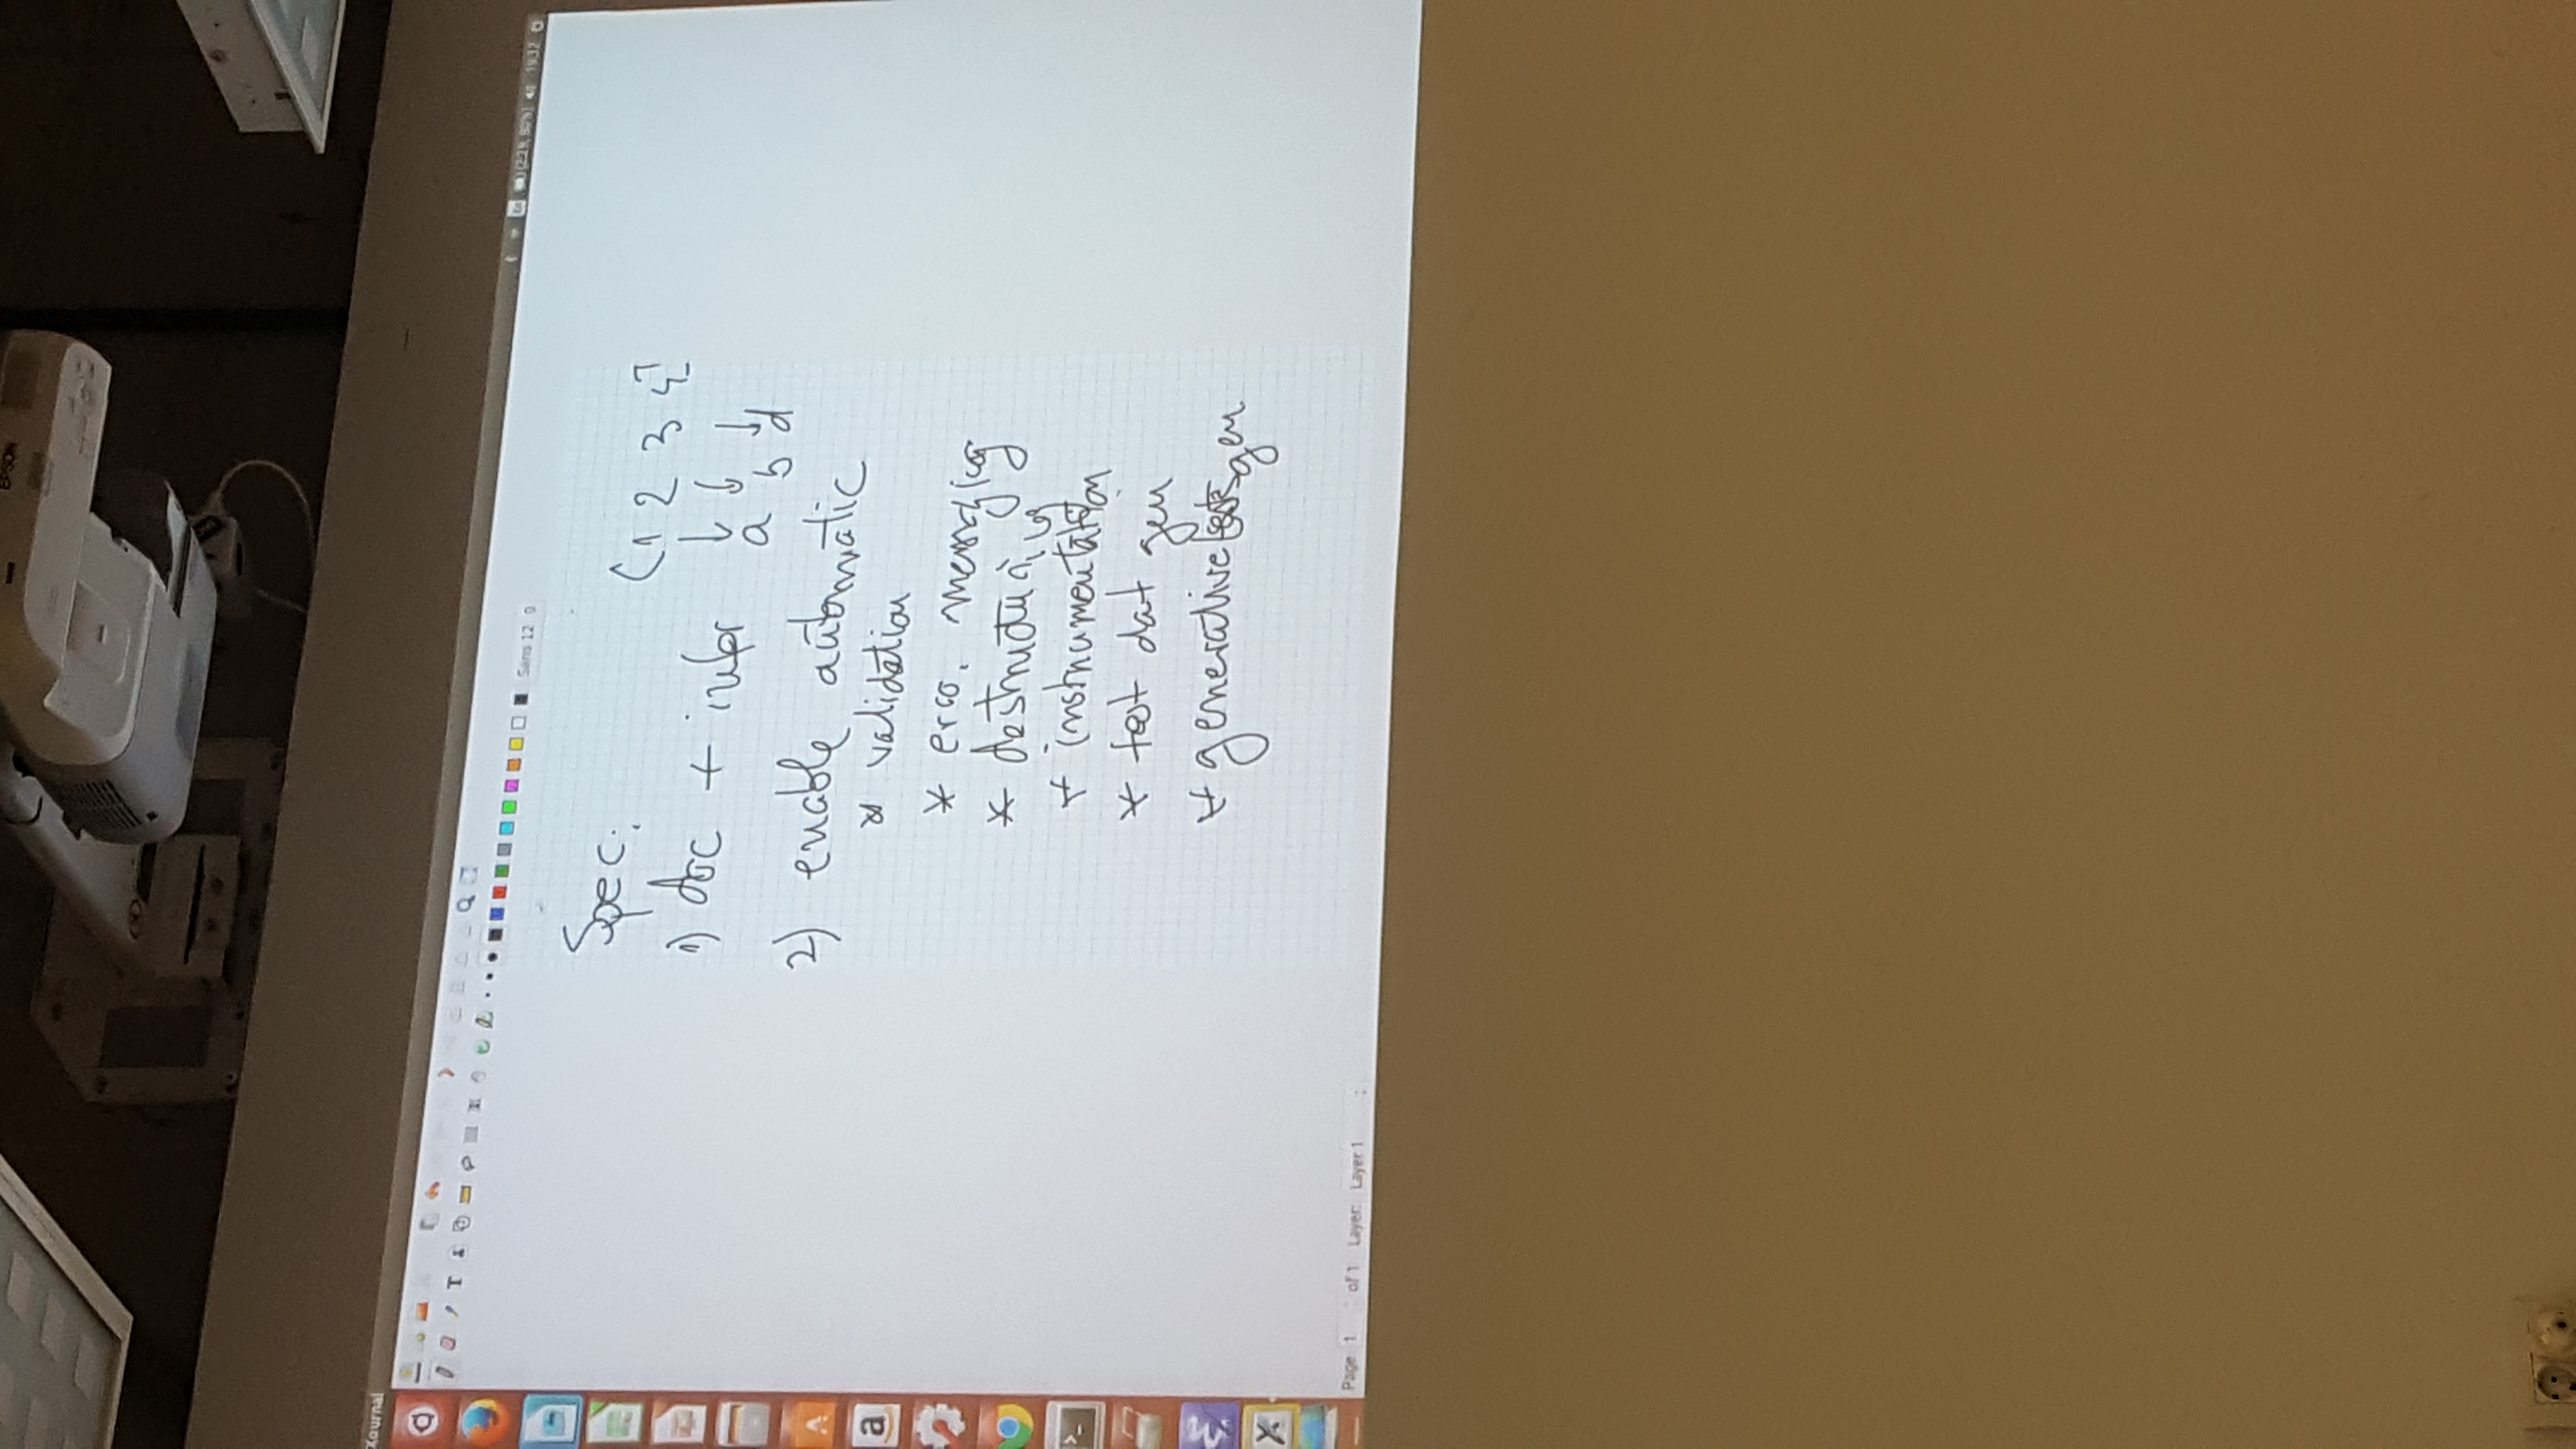 EPSON
Xournal
Sans 12
19:32
Spec:
(1 2 3 4]
1) doc + infor
a b d
2) enable automatic
* validation
* erro. messaging
* destructuring
* instrumentation
* test dat gen
* generative tests gen.
Page 1 of 1 Layer: Layer 1